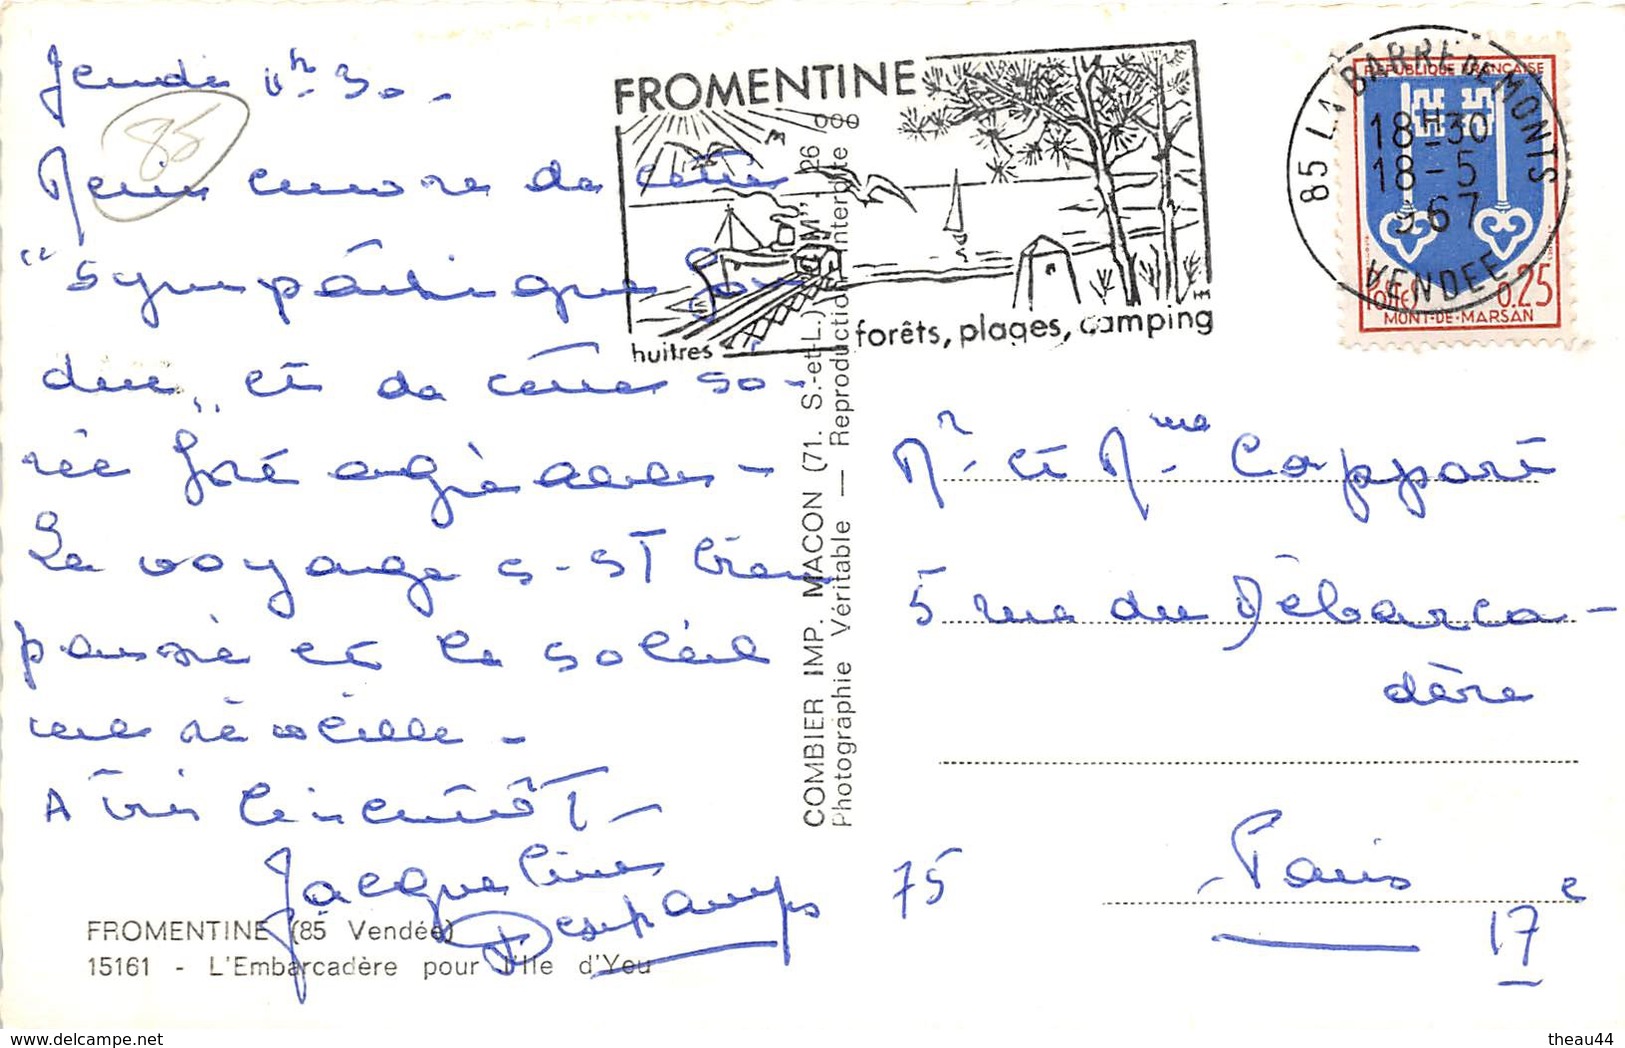 Jeudi 11h 30 -
85
Merci encore de cette
"sympathique fon
due" et de cette soi-
rée si agréables -
Le voyage s'est bien
passé et le soleil
me réveille -
A très bientôt -
Jacqueline
Deschamps
FROMENTINE (85 Vendée)
15161 - L'Embarcadère pour l'Ile d'Yeu
COMBIER IMP. MACON (71. S.-et-L.) "CIM" 26
Photographie Véritable — Reproduction Interdite
FROMENTINE
huitres
forêts, plages, camping
85 LA BARRE DE MONTS
18H30
18-5
1967
VENDEE
REPUBLIQUE FRANÇAISE
POSTES 0.25
MONT-DE-MARSAN
Mr et Mme Coppart
5 rue du Débarca-
dère
75 - Paris
17e
theau44